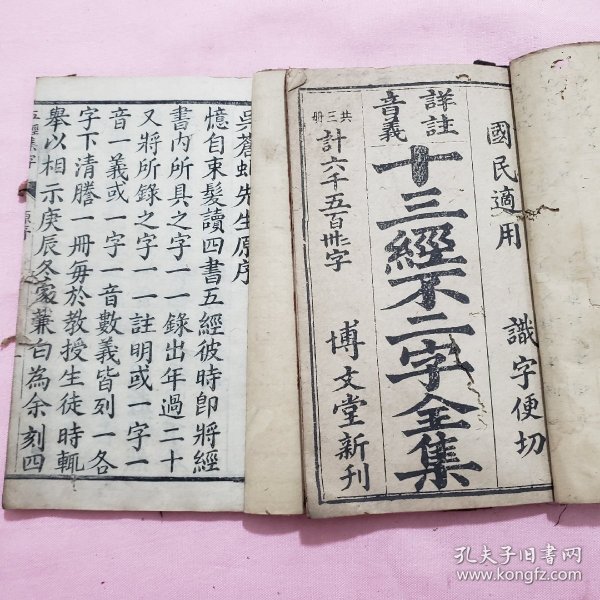 國民適用　識字便切
十三經不二字全集
詳註
音義
共三册
計六千五百卅字
博文堂新刊
吳蒼虬先生原序
憶自束髮讀四書五經彼時即將經
書內所具之字一一錄出年過二十
又將所錄之字一一註明或一字一
音一義或一字一音數義皆列一各
字下清謄一册毋於教授生徒時輒
舉以相示庚辰冬家蒹白為余刻四
五經集字
原序
孔夫子旧书网
www.kongfz.com